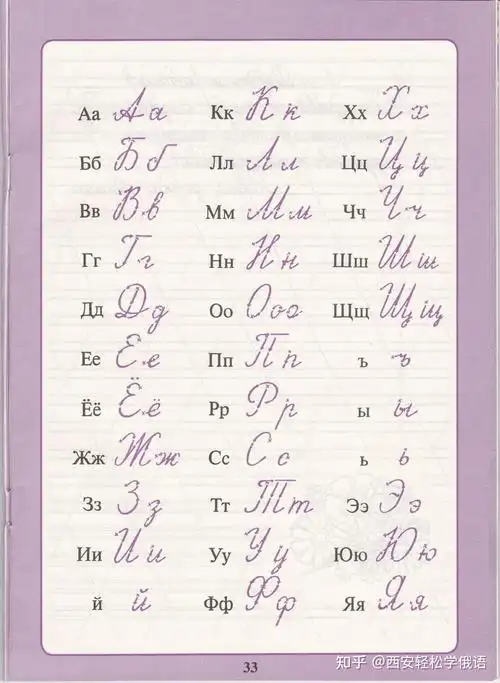 Аа Аа
Бб Бб
Вв Вв
Гг Гг
Дд Дд
Ее Ее
Ёё Ёё
Жж Жж
Зз Зз
Ии Ии
й й
Кк Кк
Лл Лл
Мм Мм
Нн Нн
Оо Ооо
Пп Пп
Рр Рр
Сс Сс
Тт Тт
Уу Уу
Фф Фф
Хх Хх
Цц Цц
Чч Чч
Шш Шш
Щщ Щщ
ъ ъ
ы ы
ь ь
Ээ Ээ
Юю Юю
Яя Яя
33
知乎 @西安轻松学俄语